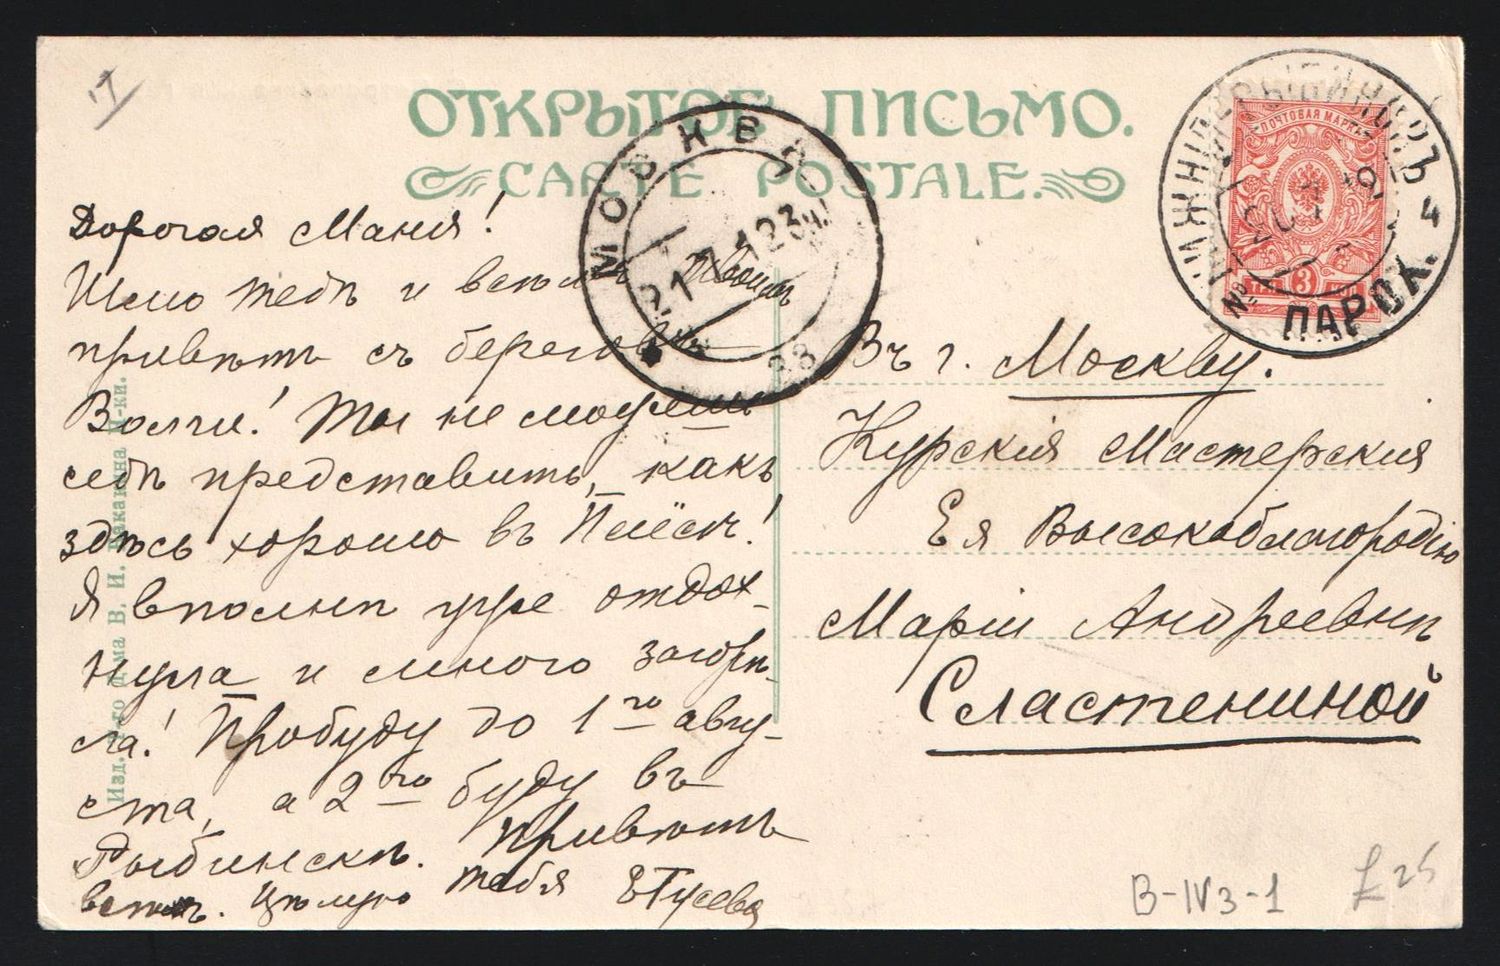 ОТКРЫТОЕ ПИСЬМО.
CARTE POSTALE.
Дорогая Маня!
Шлю тебѣ и всѣмъ твоимъ
привѣтъ съ береговъ
Волги! Ты не можешь
себѣ представить, какъ
здѣсь хорошо въ Плёсѣ!
Я вполнѣ уже отдох-
нула и много загорѣ-
ла! Пробуду до 1го авгу-
ста, а 2го буду въ
Рыбинскѣ. Привѣтъ
всѣмъ. Цѣлую тебя ЕГусева
Въ г. Москву.
Курскія Мастерскія
Ея Высокоблагородію
Маріи Андреевнѣ
Сластениной
Изд. В. И. Бакакина Н-ки.
МОСКВА
21 7 12 23
НИЖНІЙ РЫБИНСКЪ
ПАРОХ. №
4
ПОЧТОВАЯ МАРКА
3
B-IV3-1
£25